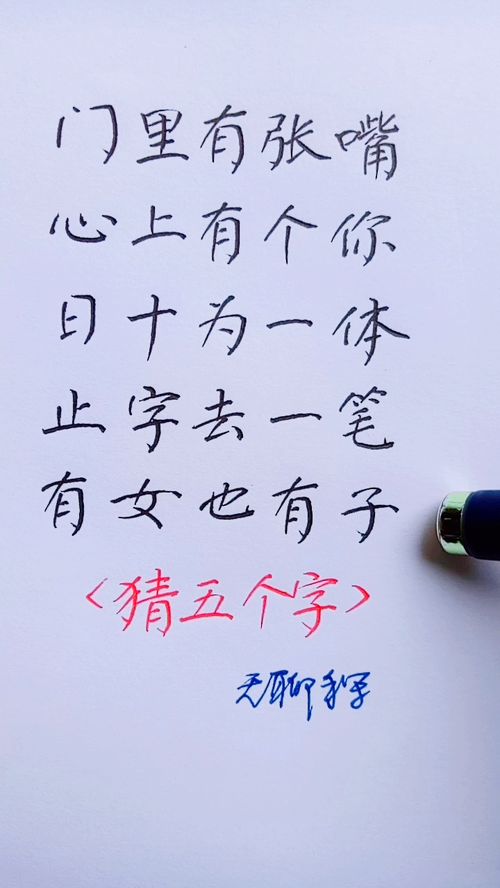 门里有张嘴
心上有个你
日十为一体
止字去一笔
有女也有子
<猜五个字>
无聊手写